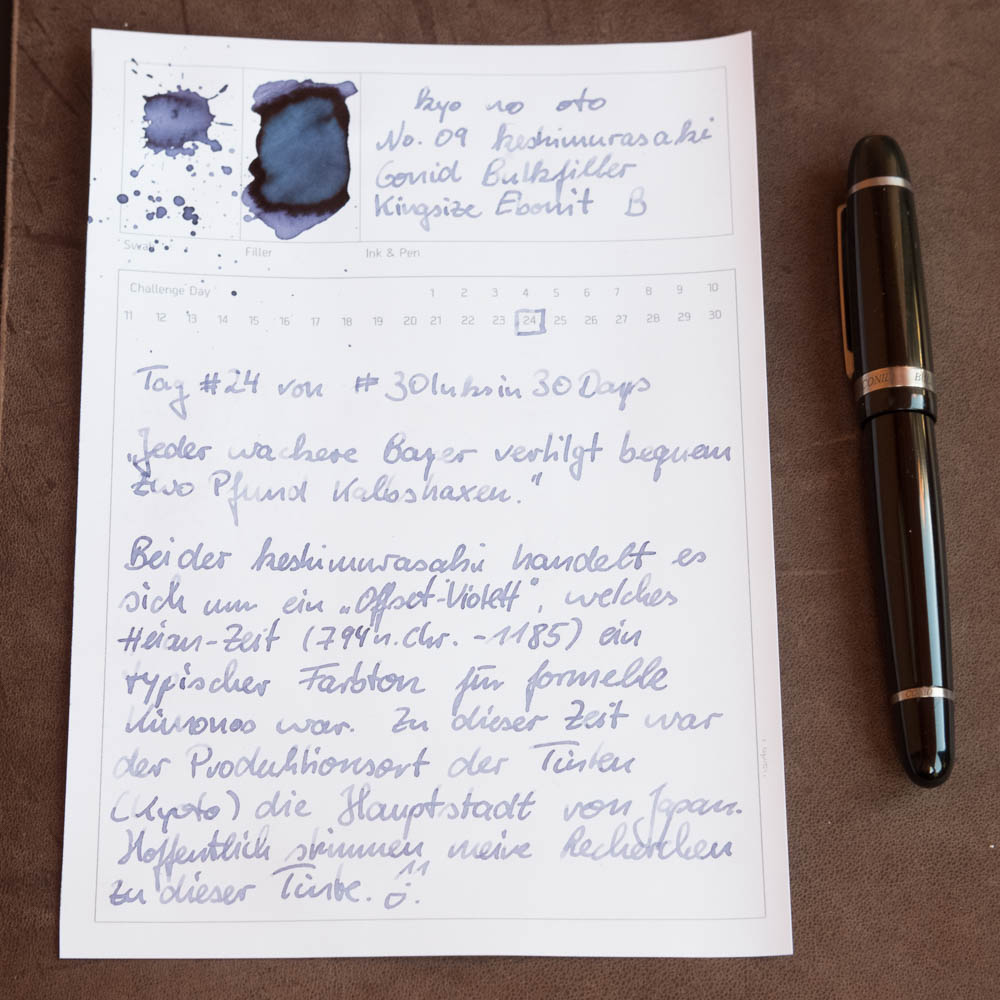 Kyo no oto
No. 09 keshimurasaki
Conid Bulkfiller
Kingsize Ebonit B
Swab
Filler
Ink & Pen
Challenge Day 1 2 3 4 5 6 7 8 9 10
11 12 13 14 15 16 17 18 19 20 21 22 23 24 25 26 27 28 29 30
Tag #24 von #30Inksin30Days
„Jeder wackere Bayer vertilgt bequem
zwo Pfund Kalbshaxen."
Bei der keshimurasaki handelt es
sich um ein „Offset-Violett", welches
Heian-Zeit (794 n. Chr. - 1185) ein
typischer Farbton für formelle
Kimonos war. Zu dieser Zeit war
der Produktionsort der Tinten
(Kyoto) die Hauptstadt von Japan.
Hoffentlich stimmen meine Recherchen
zu dieser Tinte.
CONID